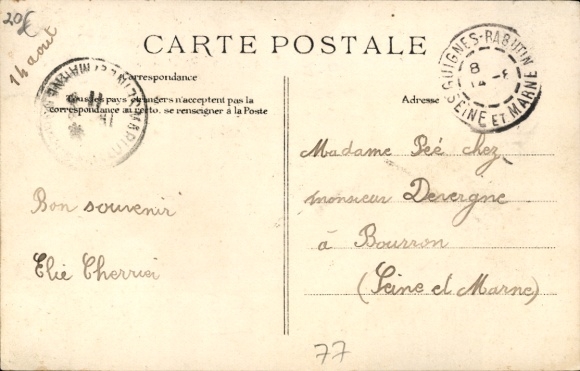 20€
14 aout
CARTE POSTALE
GUIGNES-RABUTIN
8
SEINE ET MARNE
Correspondance
Tous les pays étrangers n'acceptent pas la
correspondance au recto. se renseigner à la Poste
Adresse
Madame Pée chez
monsieur Devergne
à Bourron
(Seine et Marne)
Bon souvenir
Elie
77